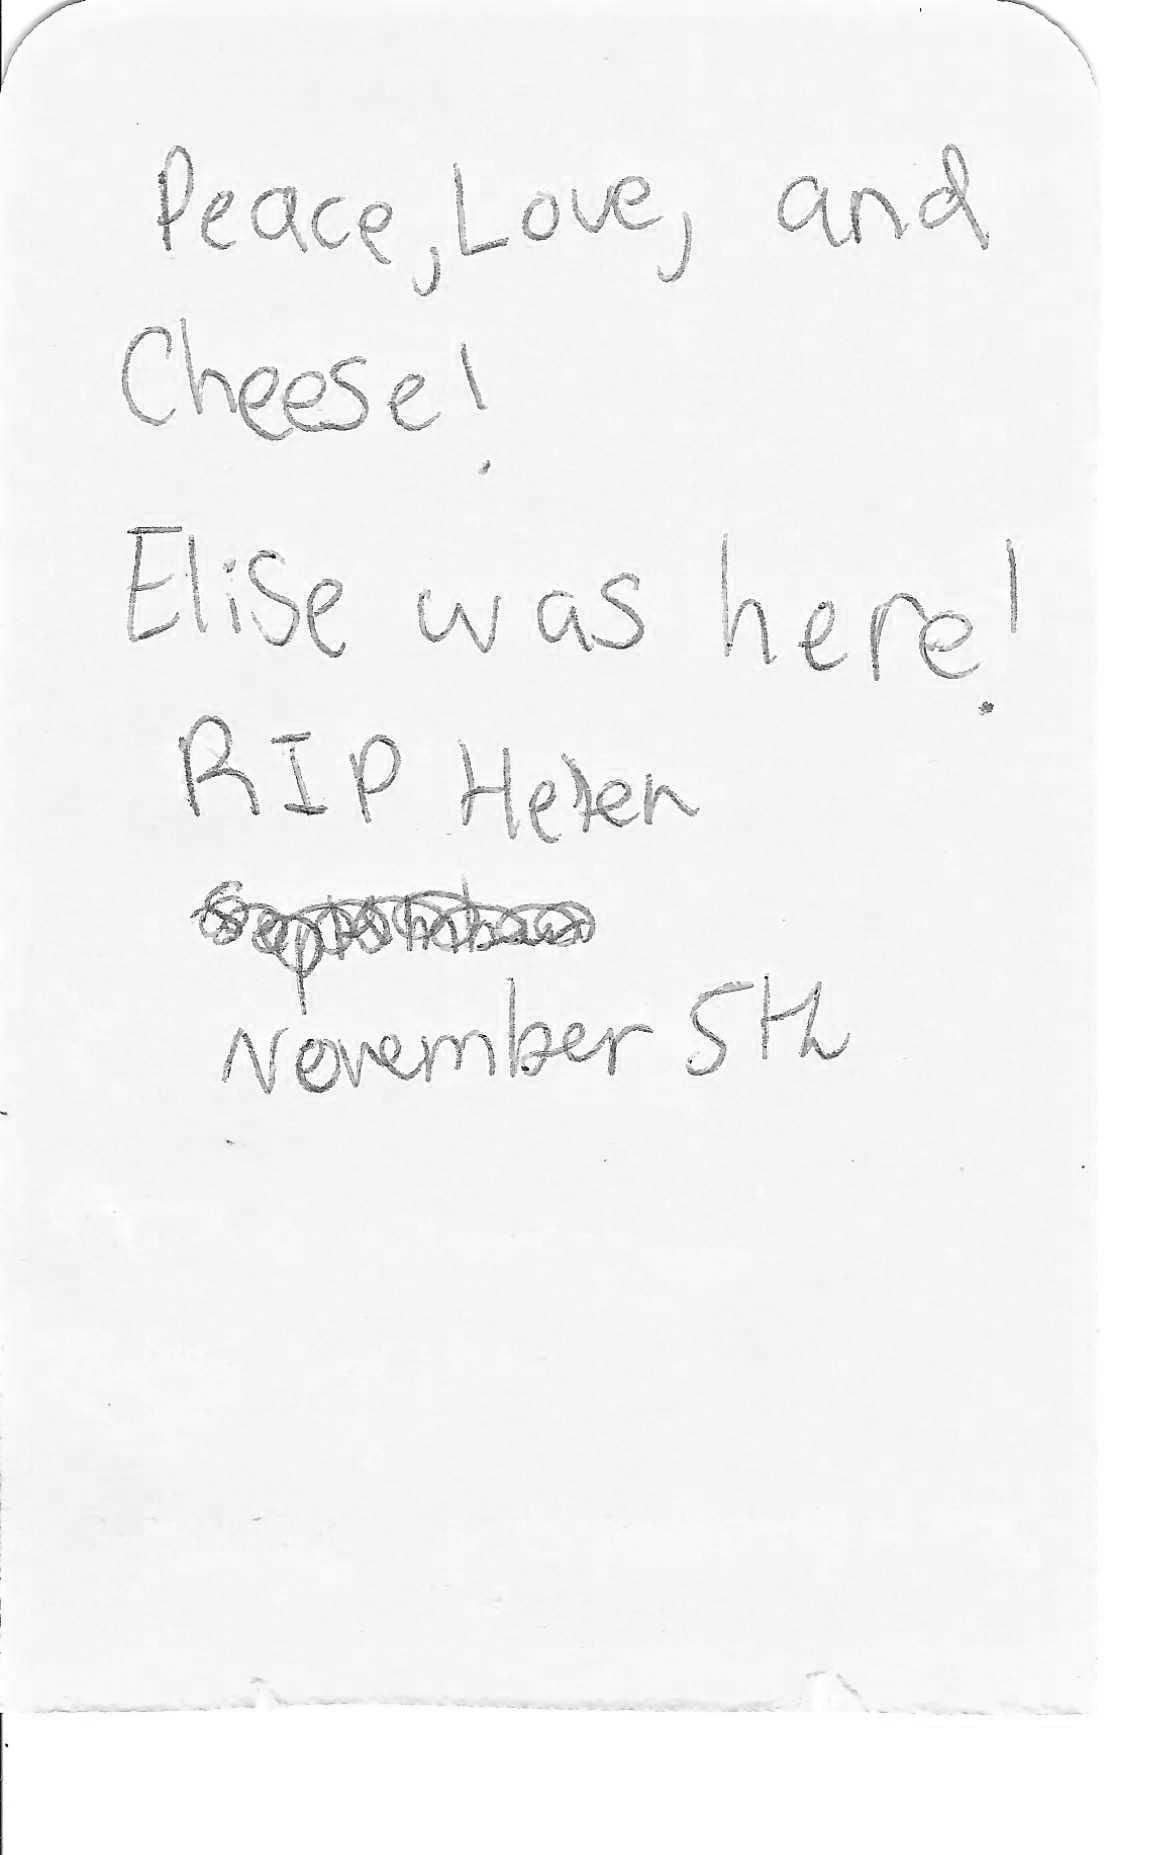 Peace, Love, and
Cheese!
Elise was here!
RIP Helen
November 5th